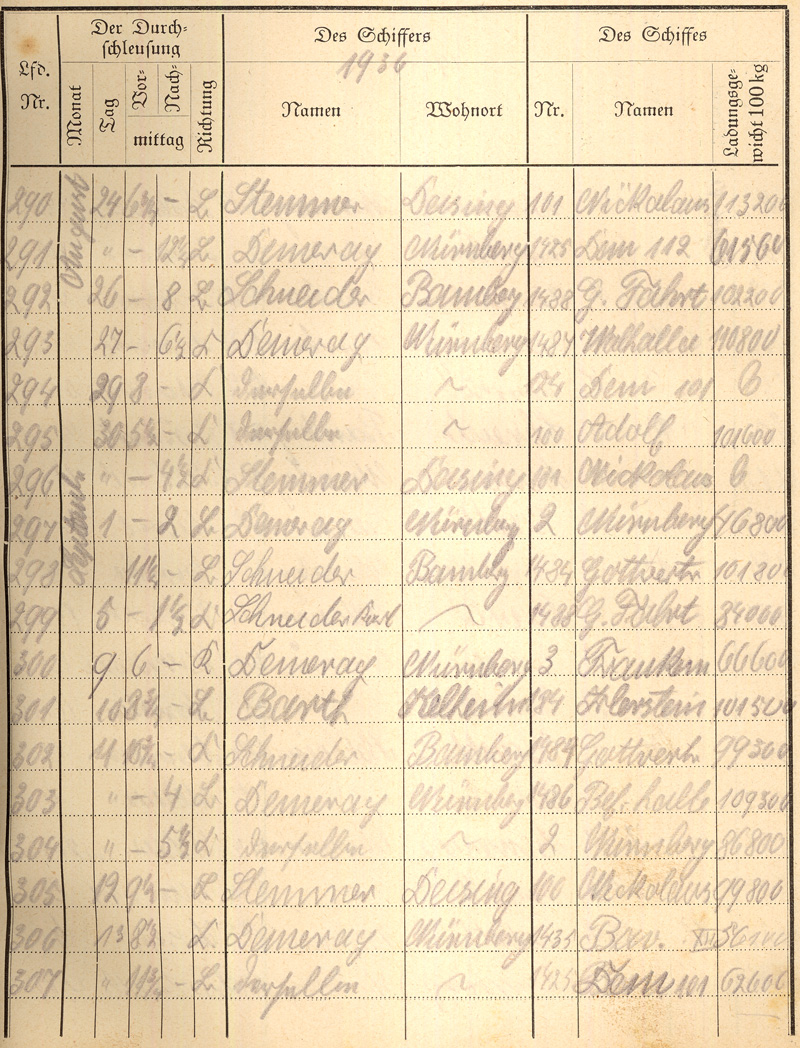 Lfd. Nr.
Der Durchschleusung
Monat Tag Vor- Nach- mittag Richtung
Des Schiffers
1936
Namen Wohnort
Des Schiffes
Nr. Namen Ladungsgewicht 100 kg
August
290 24 - L Stemmer Deising 101 Nickolaus 113200
291 " - L Demerag Nürnberg 1425 Dem 112 61560
292 26 - 8 L Schneider Bamberg 1488 G. Fahrt 102200
293 27 - L Demerag Nürnberg 1487 Walhalla 110800
294 29 8 - L derselbe ~ Dem 101
295 30 - L derselbe ~ 100 Adolf 101600
296 " - L Stemmer Deising 101 Nickolaus
297 1 - 2 L Demerag Nürnberg 2 Nürnberg 76800
298 - L Schneider Bamberg 1484 Gottvertr
299 5 - L Schneider Karl ~ 1488 G. Fahrt 84000
300 9 6 - K Demerag Nürnberg 3 Franken 66600
301 10 - L Barth Kelheim 101500
302 11 - L Schneider Bamberg 1484 Gottvertr 99300
303 " - 4 L Demerag Nürnberg 1486 Bef. halle 109300
304 " - L derselbe ~ 2 Nürnberg 86800
305 12 - L Stemmer Deising 100 Nickolaus 99800
306 13 L Demerag Nürnberg 1435 Bav.
307 " - L derselbe ~ 1425 Dem 101 62600